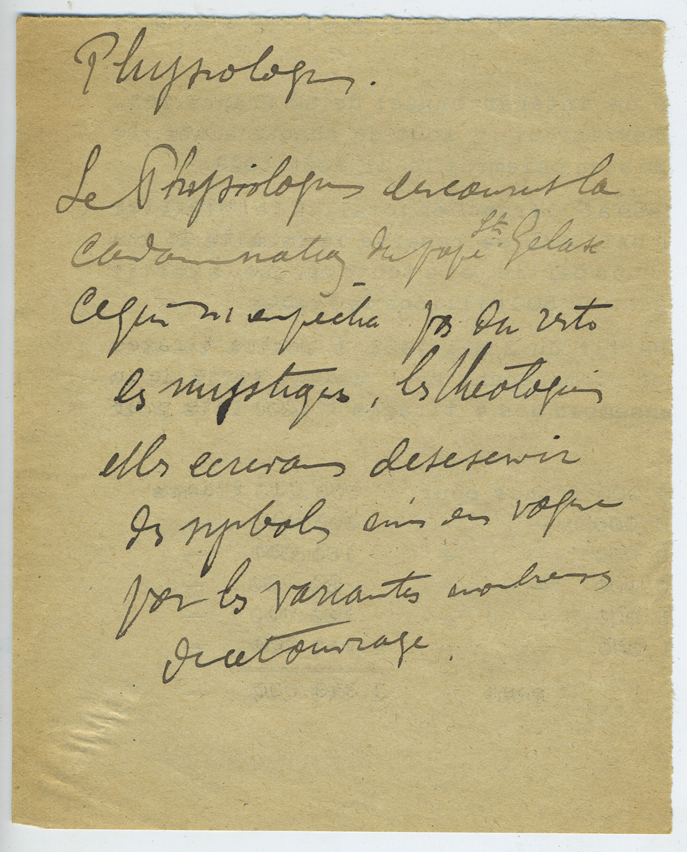 Physiologus.
Le Physiologus encourut la
condamnation du pape St. Gelase
ce qui n'empêcha pas du reste
les mystiques, les théologiens
et les ecrivains de se servir
des symboles mis en vogue
par les variantes nombreuses
de cet ouvrage.